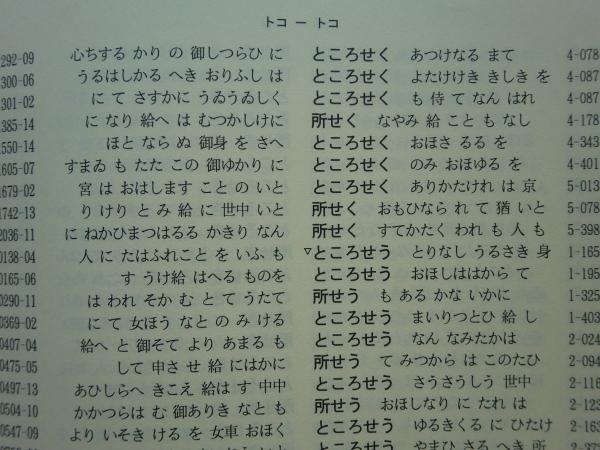 トコ ー トコ
292-09 心ちする かり の 御しつらひ に ところせく あつけなる まて 4-078
300-06 うるはしかる へき おりふし は ところせく よたけけき きしき を 4-087
301-02 に て さすかに うゐうゐしく ところせく も 侍 て なん はれ 4-087
385-14 に なり 給へ は むつかしけに 所せく なやみ 給 こと も なし 4-178
550-14 ほと なら ぬ 御身 を さへ ところせく おほさ るる を 4-343
605-07 すまゐ も たた この 御ゆかり に ところせく のみ おほゆる を 4-401
679-02 宮 は おはします こと の いと ところせく ありかたけれ は 京 5-013
742-13 り けり と み 給 に 世中 いと 所せく おもひなら れ て 猶 いと 5-078
036-11 に ねかひまつはるる かきり なん 所せく すてかたく われ も 人 も 5-398
138-04 人 に たはふれこと を いふ も ▽ところせう とりなし うるさき 身 1-165
165-06 す うけ給 はへる ものを ところせう おほしははから て 1-195
290-11 は われ そか む と て うたて 所せう も ある かな いかに 1-325
369-02 に て 女ほう なと の み ける ところせう まいりつとひ 給 し 1-403
407-04 給へ と 御そて より あまる も ところせう なん なみたかは 2-024
475-05 して 申 させ 給 にはかに 所せう て みつから は このたひ 2-094
497-13 あひしらへ きこえ 給は す 中中 ところせう さうさうしう 世中 2-116
504-10 かかつらは む 御ありき なと も 所せう おほしなり に たれ は 2-123
547-09 より いそき ける を 女車 おほく ところせう ゆるきくる に ひたけ 2-163
ところせう やまひ さる へき 所